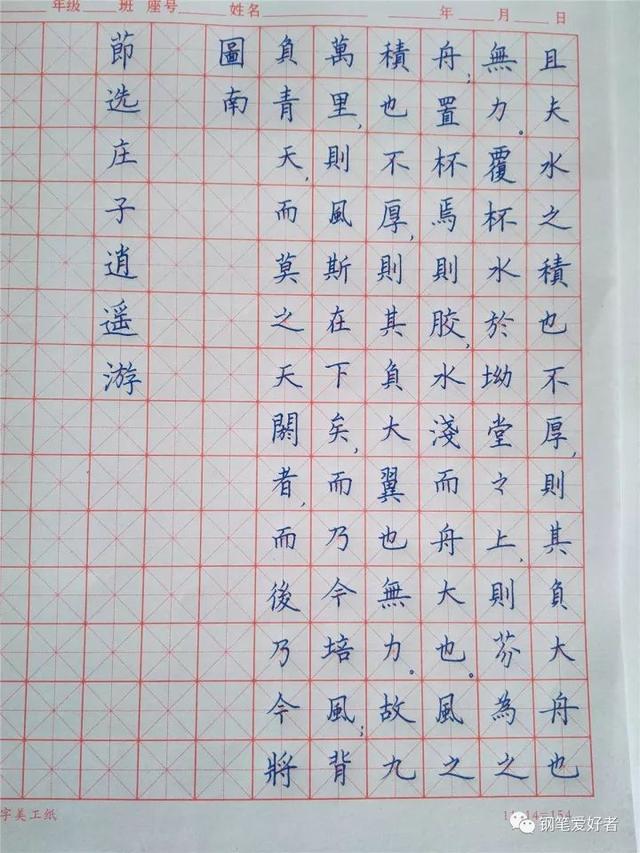 年级 班 座号 姓名 年 月 日
且夫水之積也不厚,則其負大舟也
無力。覆杯水於坳堂々上,則芥為之
舟;置杯焉則胶,水淺而舟大也。風之
積也不厚,則其負大翼也無力。故九
萬里,則風斯在下矣,而乃今培風;背
負青天,而莫之天閼者,而後乃今將
圖南
節选庄子逍遥游
字美工纸
钢笔爱好者